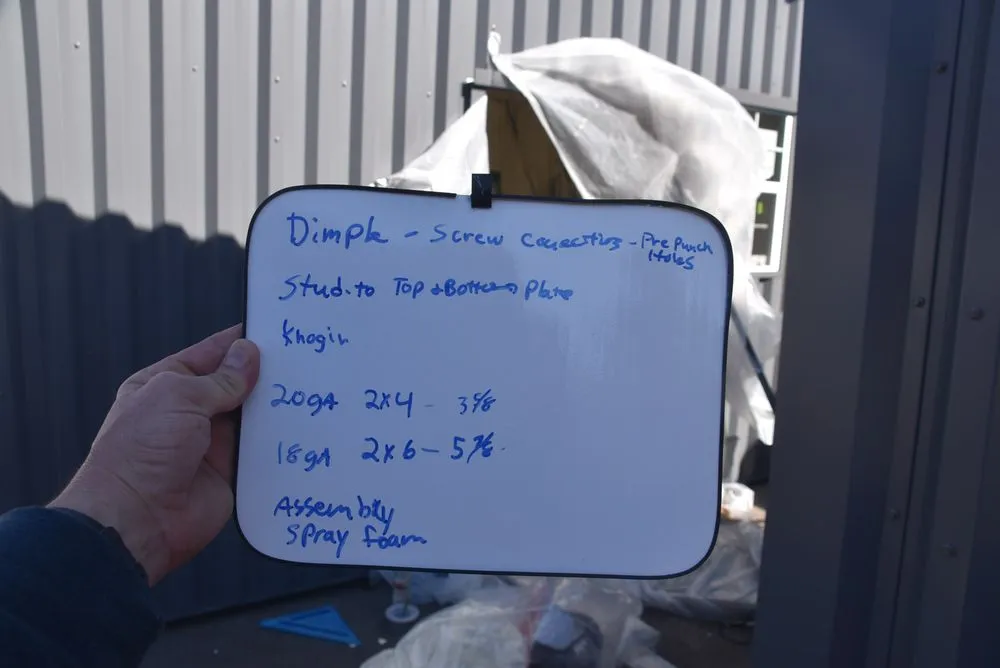 Dimple - Screw Conections - Pre Punch
Holes
Stud to Top & Bottom Plate
20gA 2x4 - 3 5/8
18gA 2x6 -
Assembly
Spray foam